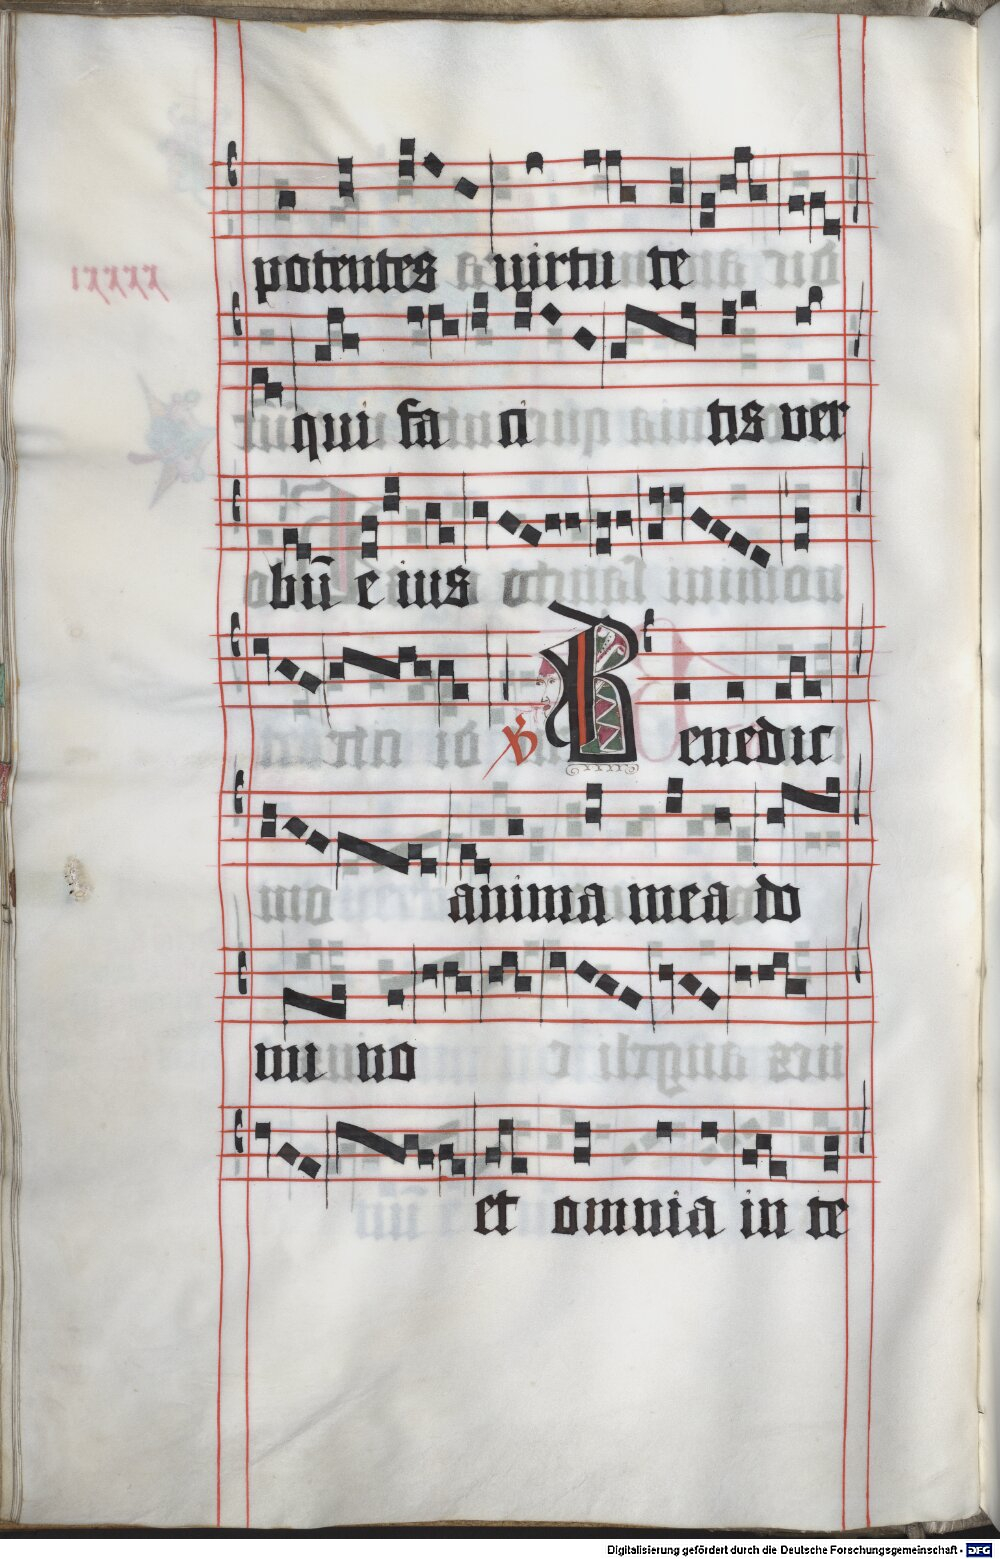 potentes uirtu te
qui fa ci tis ver
bū e ius
℣ Benedic
anima mea do
mi no
et omnia in te
Digitalisierung gefördert durch die Deutsche Forschungsgemeinschaft - DFG